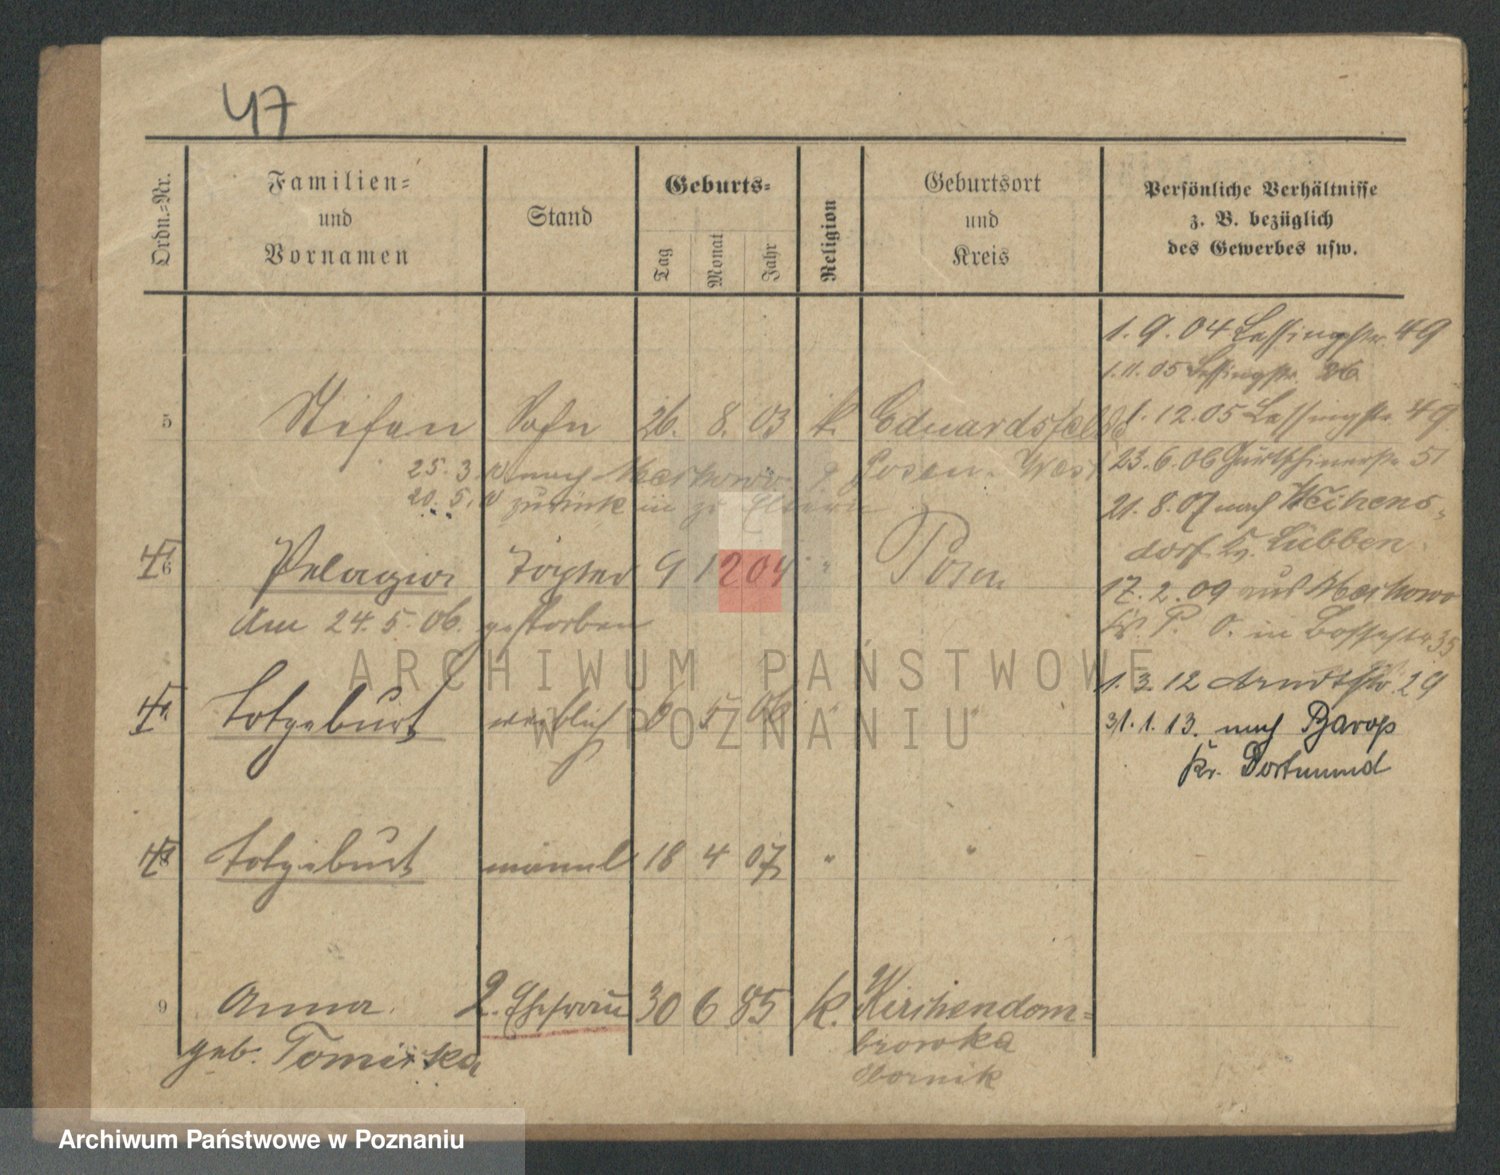 47
Ordn.-Nr.
Familien-
und
Vornamen
Stand
Geburts-
Tag
Monat
Jahr
Religion
Geburtsort
und
Kreis
Persönliche Verhältnisse
z. B. bezüglich
des Gewerbes usw.
1. 9. 04 Lessingstr. 49
1. 11. 05 Lessingstr. 26
5 Stefan Sohn 26. 8. 03 k. Eduardsfelde
1. 12. 05 Lessingstr. 49
25. 3. nach Posen-West
23. 6. 06 51
20. 5. zurück zu Eltern
21. 8. 07 nach
dorf Kr. Lübben
6 Pelagia Tochter 9 12 04 " Posen
17. 2. 09 aus
Am 24. 5. 06. gestorben
Kr. P. O. in 35
1. 3. 12 Arndtstr. 29
Totgeburt weiblich 6 5 06 " "
31. 1. 13. nach Barop
Kr. Dortmund
Totgeburt männl 18 4 07 " "
9 Anna 2. Ehefrau 30 6 85 k. Kirchendom-
browka
geb. Tomirska
Obornik
ARCHIWUM PAŃSTWOWE
W POZNANIU
Archiwum Państwowe w Poznaniu